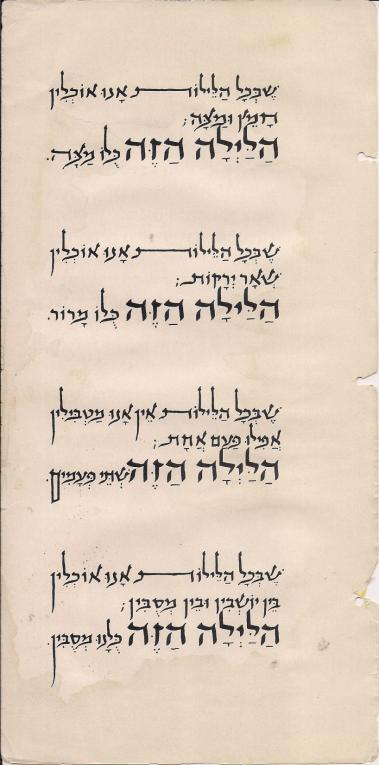 שֶׁבְּכָל הַלֵּילוֹת אָנוּ אוֹכְלִין
חָמֵץ וּמַצָּה;
הַלַּיְלָה הַזֶּה כֻּלּוֹ מַצָּה.
שֶׁבְּכָל הַלֵּילוֹת אָנוּ אוֹכְלִין
שְׁאָר יְרָקוֹת;
הַלַּיְלָה הַזֶּה כֻּלּוֹ מָרוֹר.
שֶׁבְּכָל הַלֵּילוֹת אֵין אָנוּ מַטְבִּילִין
אֲפִילוּ פַּעַם אֶחָת;
הַלַּיְלָה הַזֶּה שְׁתֵּי פְעָמִים.
שֶׁבְּכָל הַלֵּילוֹת אָנוּ אוֹכְלִין
בֵּין יוֹשְׁבִין וּבֵין מְסֻבִּין;
הַלַּיְלָה הַזֶּה כֻּלָּנוּ מְסֻבִּין.